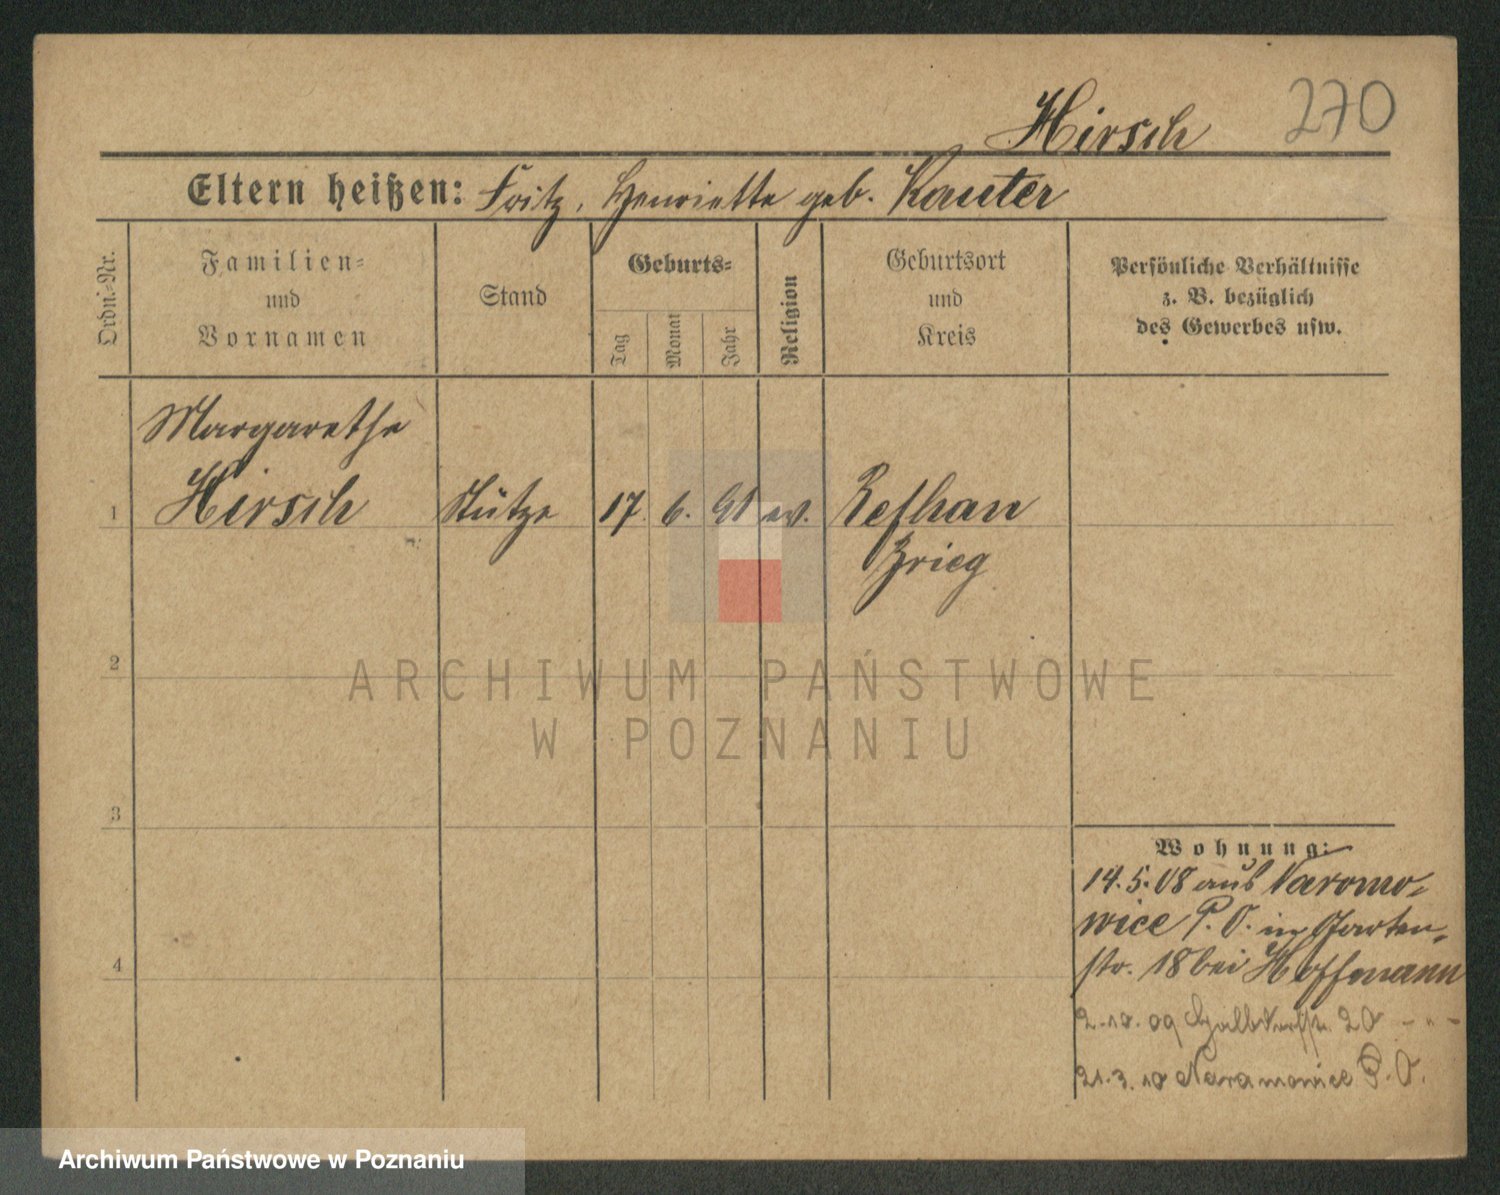 270
Hirsch
Eltern heißen: Fritz, Henriette geb. Kauter
Ordn.-Nr.
Familien-
und
Vornamen
Stand
Geburts-
Tag
Monat
Jahr
Religion
Geburtsort
und
Kreis
Persönliche Verhältnisse
z. B. bezüglich
des Gewerbes usw.
Margarethe
1 Hirsch Stütze 17. 6. 91 ev.
Brieg
2
3
4
Wohnung:
14.5.08 aus Naromo-
wice P. O. in Garten-
str. 18 bei Hoffmann
2.10.09 Halbdorfstr. 20 - " -
21.3.10 Naramowice P. O.
ARCHIWUM PAŃSTWOWE
W POZNANIU
Archiwum Państwowe w Poznaniu